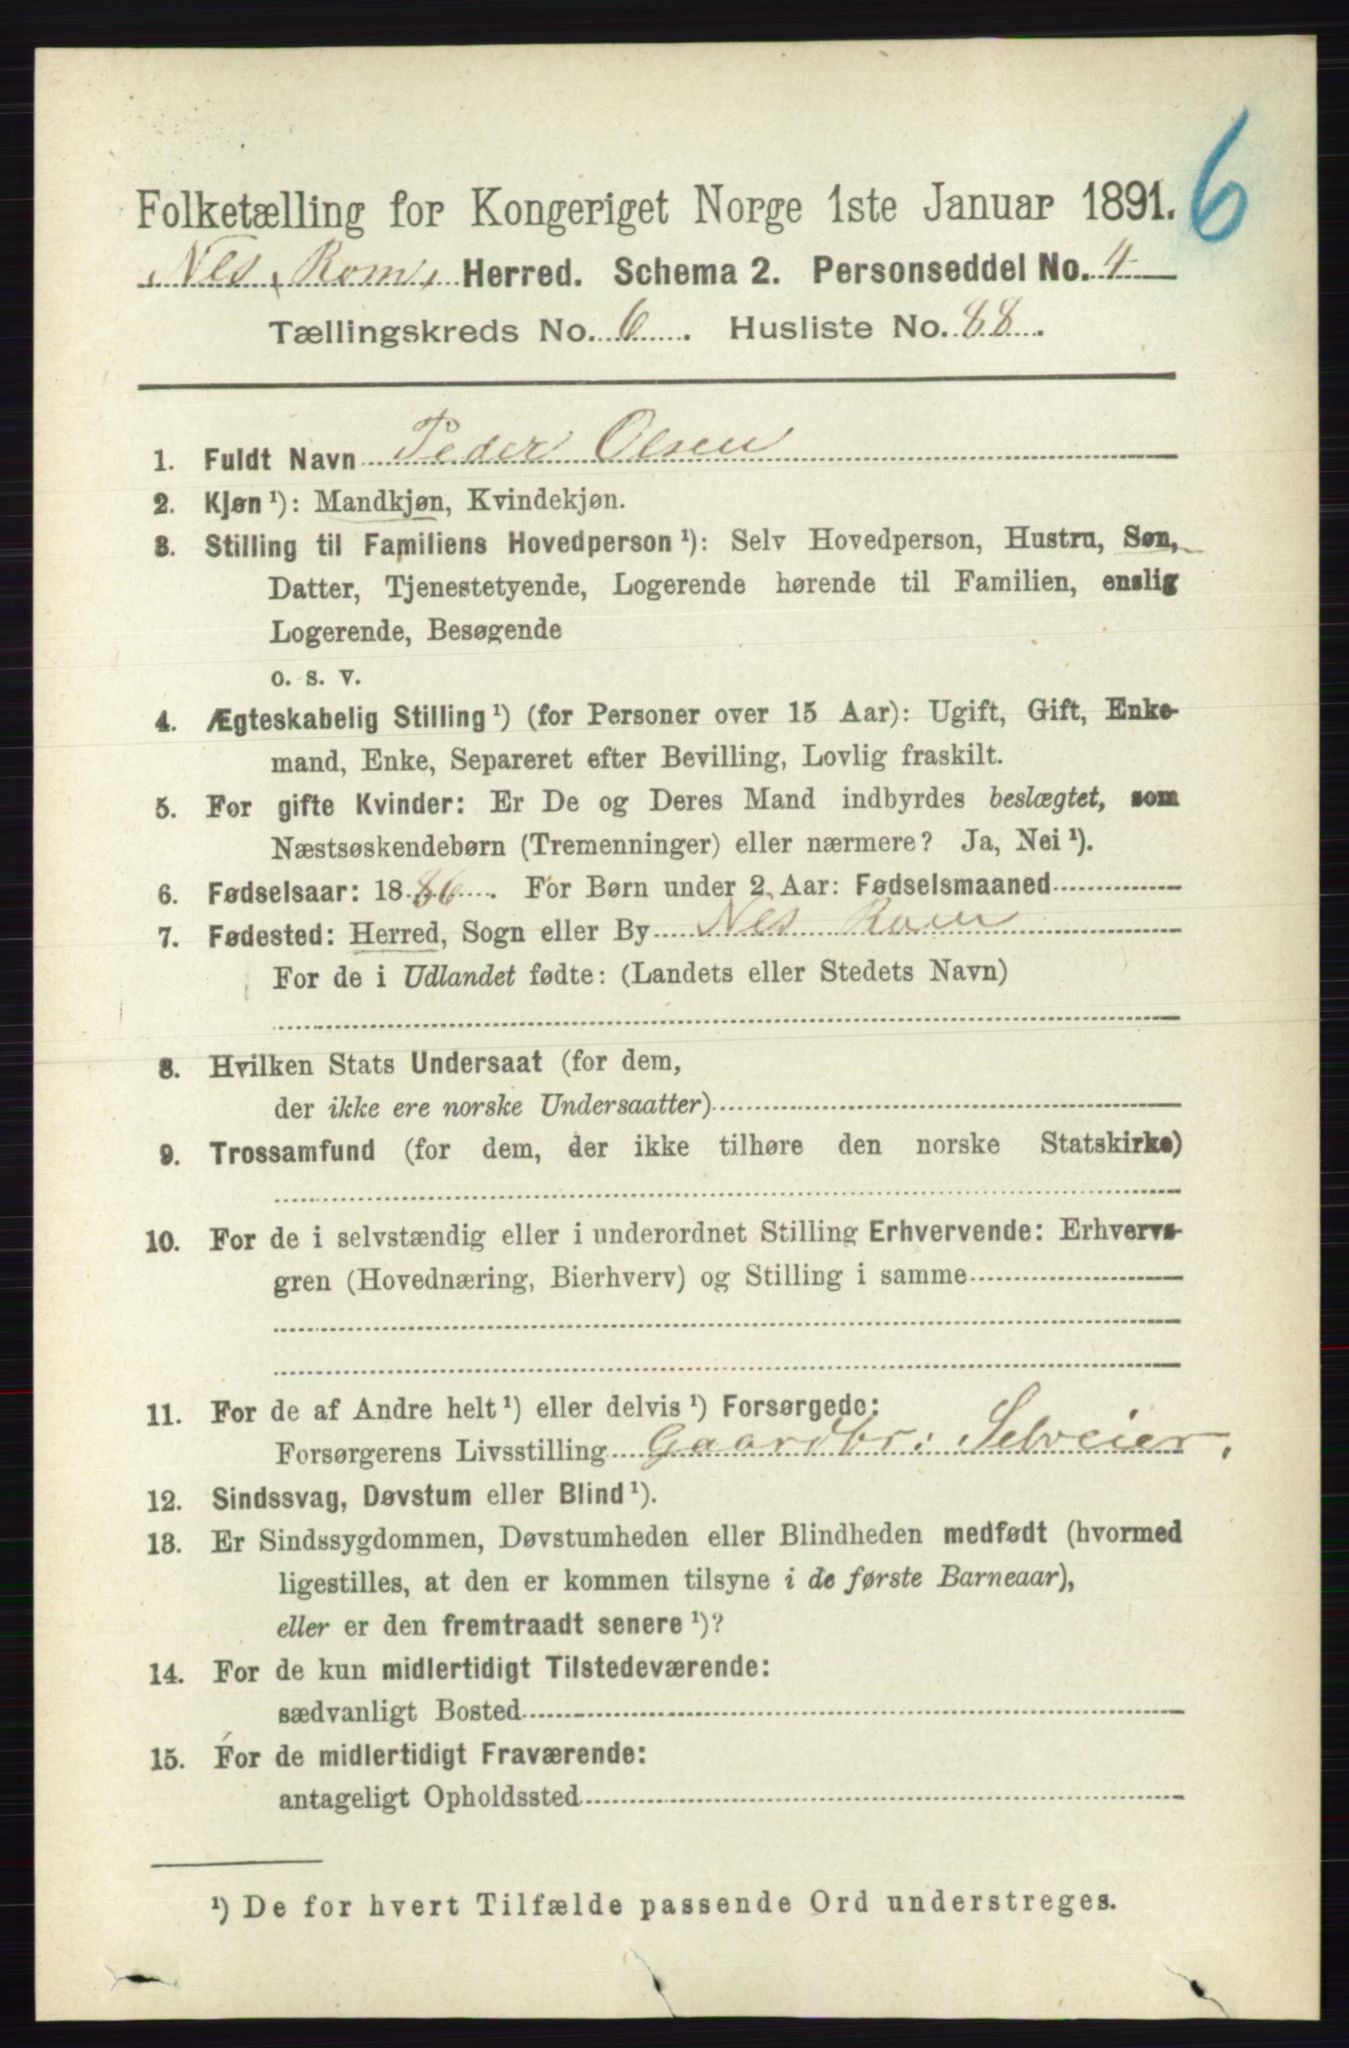 6
Folketælling for Kongeriget Norge 1ste Januar 1891.
Nes, Rom, Herred. Schema 2. Personseddel No. 4
Tællingskreds No. 6. Husliste No. 88.
1. Fuldt Navn Peder Olsen
2. Kjøn ¹): Mandkjøn, Kvindekjøn.
3. Stilling til Familiens Hovedperson ¹): Selv Hovedperson, Hustru, Søn,
Datter, Tjenestetyende, Logerende hørende til Familien, enslig
Logerende, Besøgende
o. s. v.
4. Ægteskabelig Stilling ¹) (for Personer over 15 Aar): Ugift, Gift, Enke-
mand, Enke, Separeret efter Bevilling, Lovlig fraskilt.
5. For gifte Kvinder: Er De og Deres Mand indbyrdes beslægtet, som
Næstsøskendebørn (Tremenninger) eller nærmere? Ja, Nei ¹).
6. Fødselsaar: 1886. For Børn under 2 Aar: Fødselsmaaned
7. Fødested: Herred, Sogn eller By Nes Rom
For de i Udlandet fødte: (Landets eller Stedets Navn)
8. Hvilken Stats Undersaat (for dem,
der ikke ere norske Undersaatter)
9. Trossamfund (for dem, der ikke tilhøre den norske Statskirke)
10. For de i selvstændig eller i underordnet Stilling Erhvervende: Erhvervs-
gren (Hovednæring, Bierhverv) og Stilling i samme
11. For de af Andre helt ¹) eller delvis ¹) Forsørgede:
Forsørgerens Livsstilling Gaardbr: Selveier,
12. Sindssvag, Døvstum eller Blind ¹).
13. Er Sindssygdommen, Døvstumheden eller Blindheden medfødt (hvormed
ligestilles, at den er kommen tilsyne i de første Barneaar),
eller er den fremtraadt senere ¹)?
14. For de kun midlertidigt Tilstedeværende:
sædvanligt Bosted
15. For de midlertidigt Fraværende:
antageligt Opholdssted
¹) De for hvert Tilfælde passende Ord understreges.